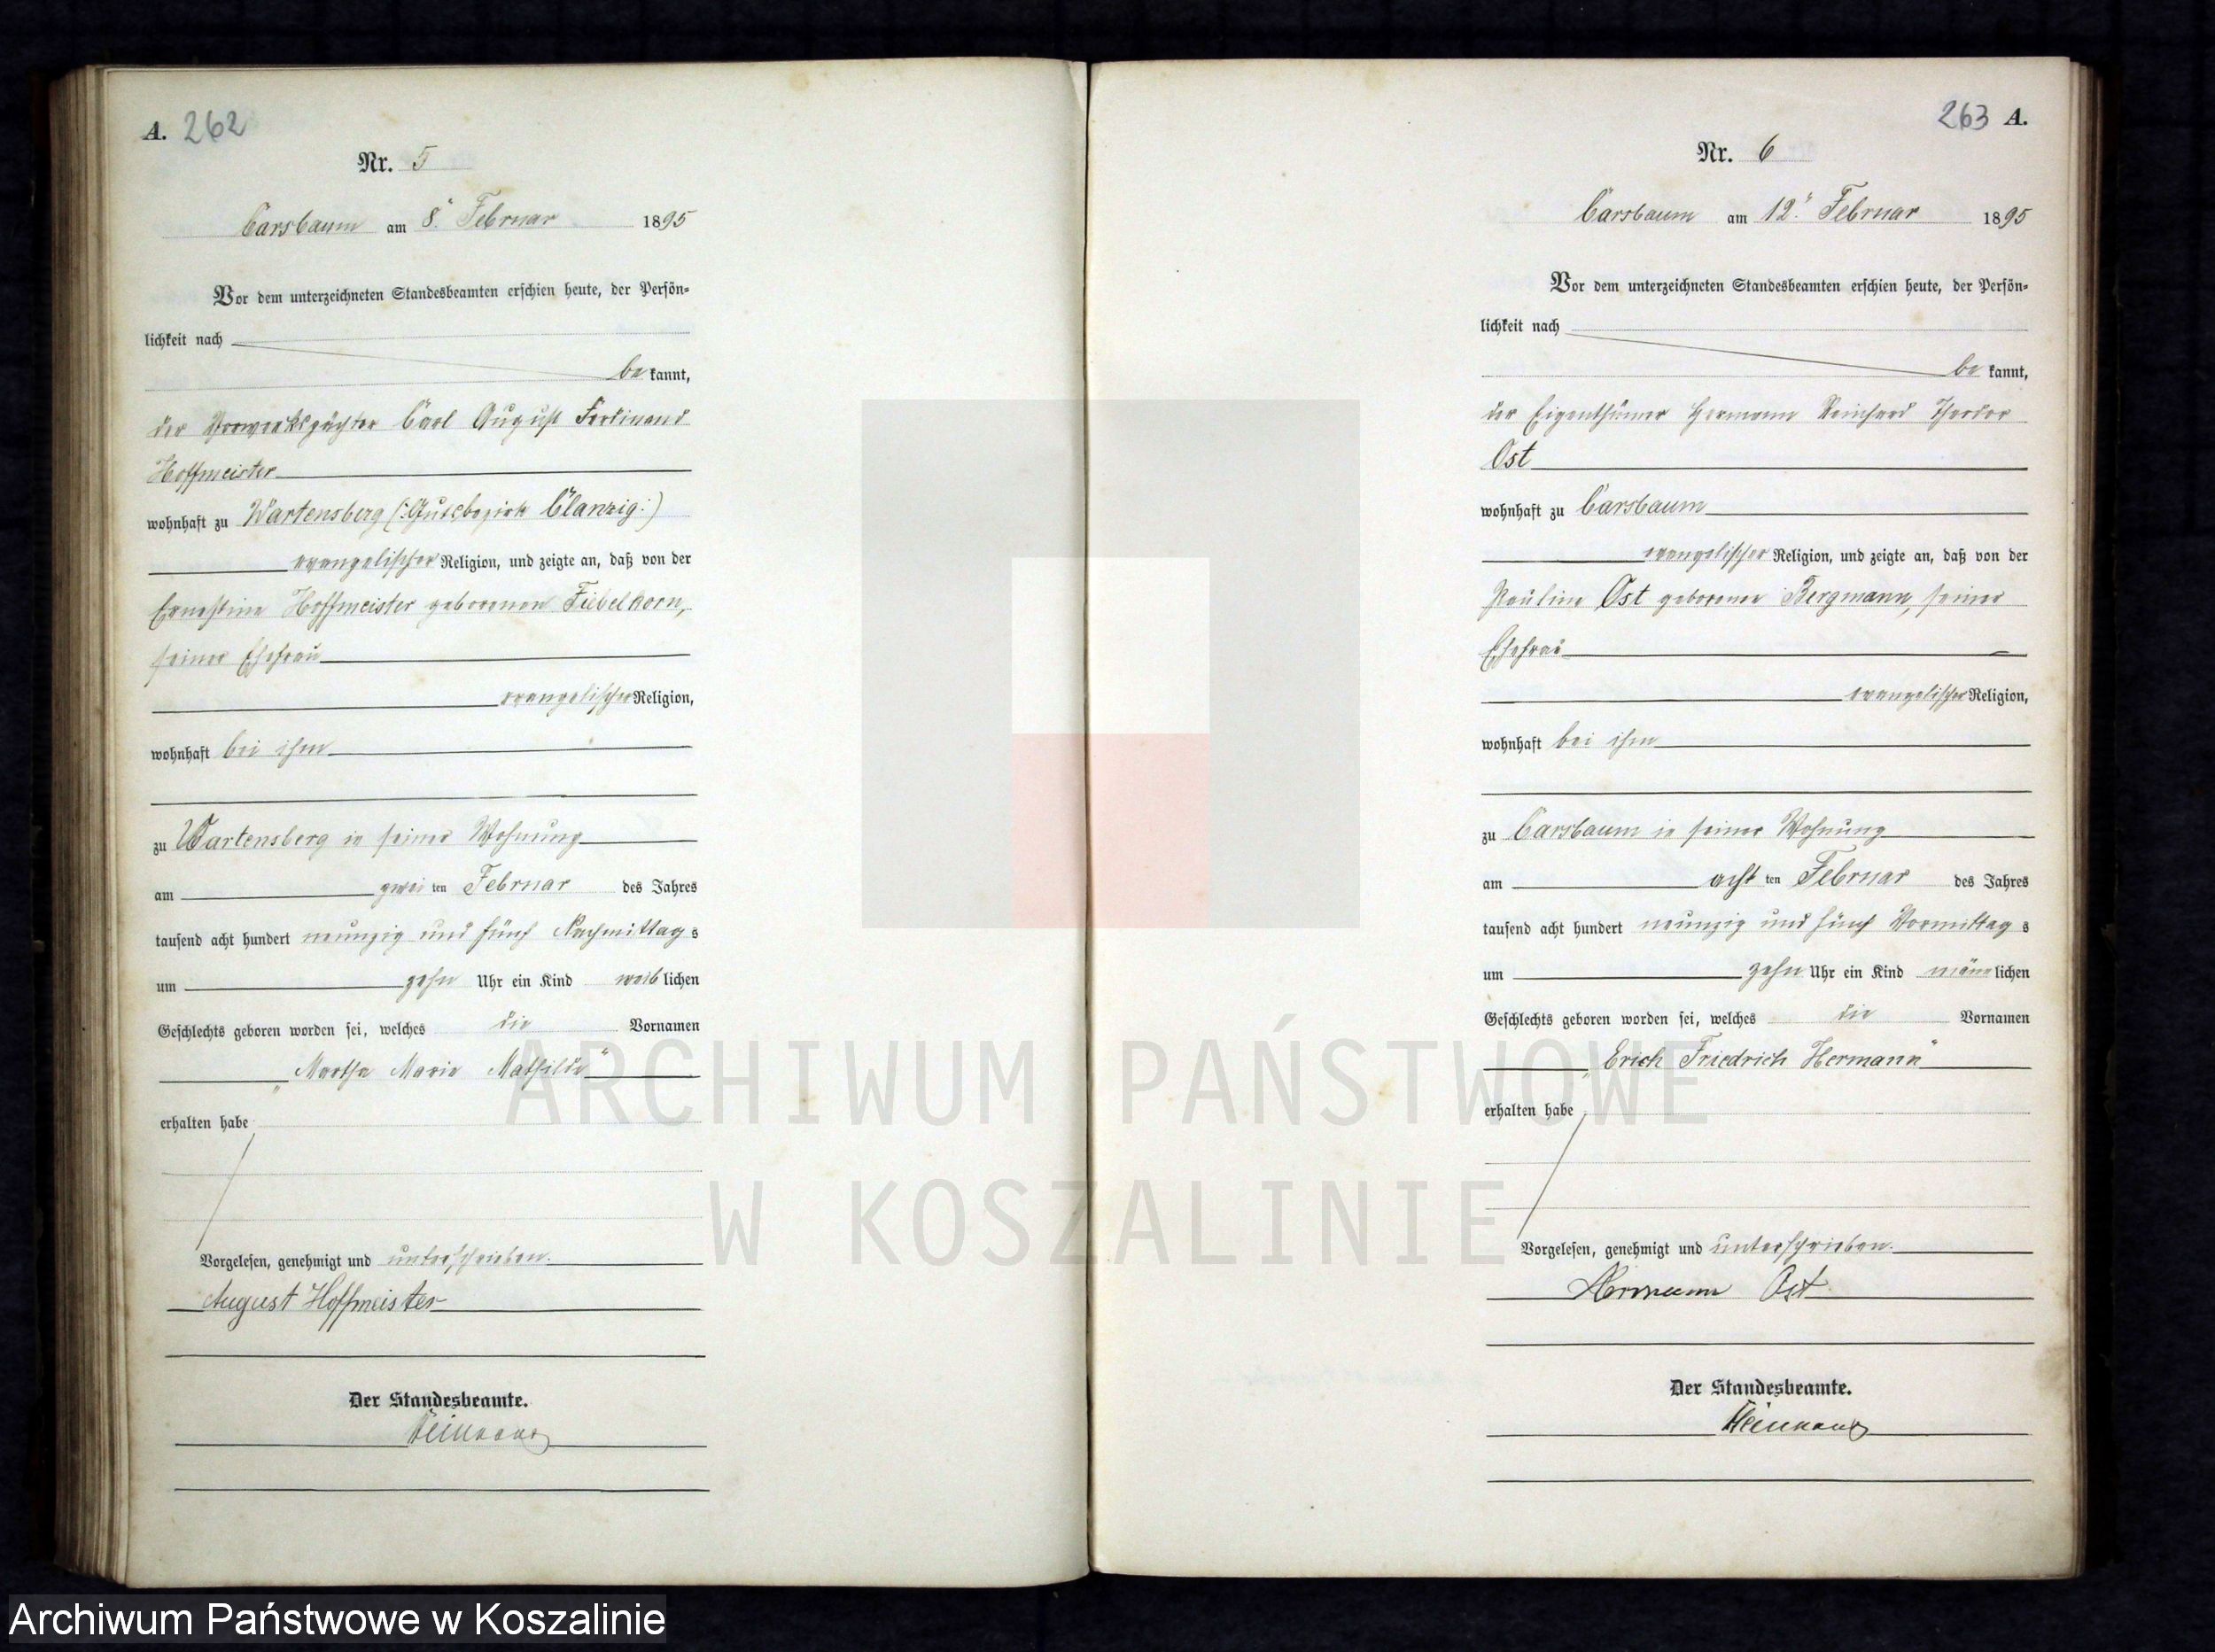 A. 262
Nr. 5
Carsbaum am 8. Februar 1895
Vor dem unterzeichneten Standesbeamten erschien heute, der Persön-
lichkeit nach
be kannt,
der Vorwerkspächter Carl August Ferdinand
Hoffmeister
wohnhaft zu Wartensberg (:Gutsbezirk Clanzig:)
evangelischer Religion, und zeigte an, daß von der
Ernestine Hoffmeister geborenen Fiebelkorn,
seiner Ehefrau
evangelischer Religion,
wohnhaft bei ihm
zu Wartensberg in seiner Wohnung
am zwei ten Februar des Jahres
tausend acht hundert neunzig und fünf Nachmittag s
um zehn Uhr ein Kind weib lichen
Geschlechts geboren worden sei, welches die Vornamen
„Martha Marie Mathilde“
erhalten habe
Vorgelesen, genehmigt und unterschrieben.
August Hoffmeister
Der Standesbeamte.
263 A.
Nr. 6
Carsbaum am 12. Februar 1895
Vor dem unterzeichneten Standesbeamten erschien heute, der Persön-
lichkeit nach
be kannt,
der Eigenthümer Hermann Reinhard Theodor
Ost
wohnhaft zu Carsbaum
evangelischer Religion, und zeigte an, daß von der
Pauline Ost geborene Bergmann, seiner
Ehefrau
evangelischer Religion,
wohnhaft bei ihm
zu Carsbaum in seiner Wohnung
am acht ten Februar des Jahres
tausend acht hundert neunzig und fünf Vormittag s
um zehn Uhr ein Kind männ lichen
Geschlechts geboren worden sei, welches die Vornamen
„Erich Friedrich Hermann“
erhalten habe
Vorgelesen, genehmigt und unterschrieben.
Hermann Ost
Der Standesbeamte.
ARCHIWUM PAŃSTWOWE
W KOSZALINIE
Archiwum Państwowe w Koszalinie